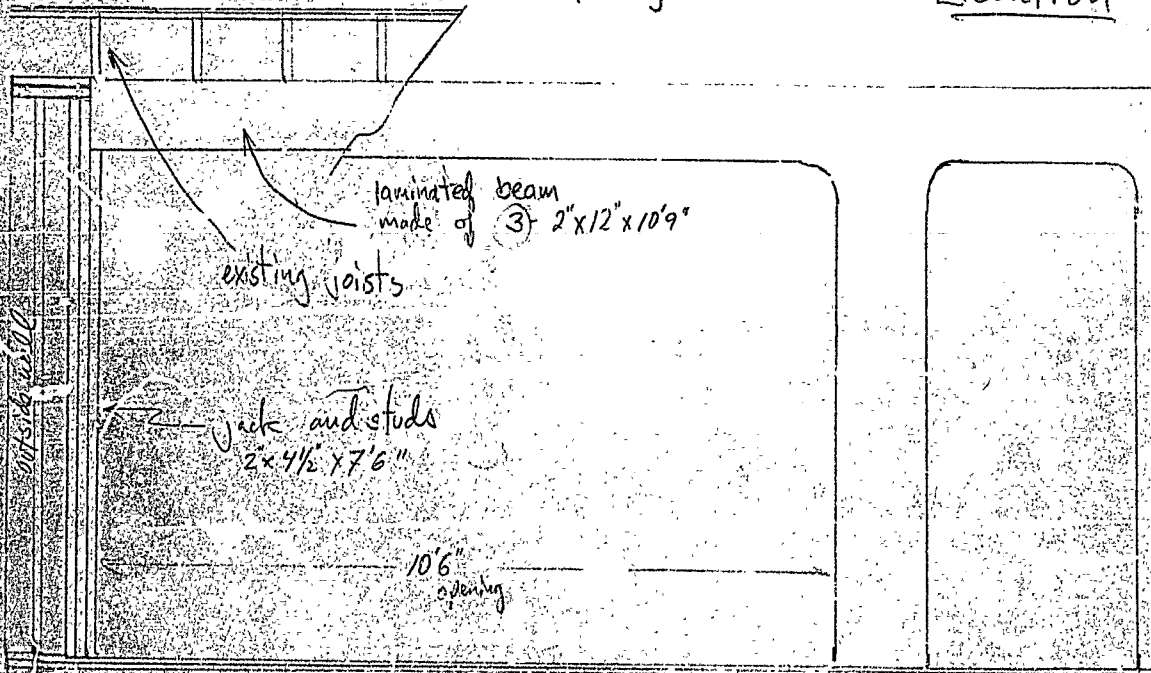 laminated beam
made of 3- 2"x12"x10'9"
existing joists
outside wall
jack and studs
2"x4½"x7'6"
10'6"
opening